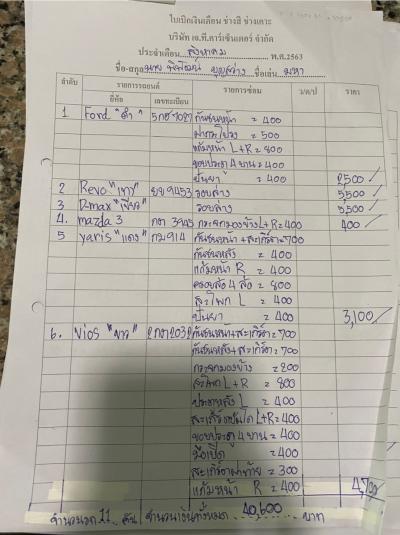 ใบเบิกเงินเดือน ช่างสี ช่างเคาะ
บริษัท เจ.ที.คาร์เซ็นเตอร์ จำกัด
ประจำเดือน สิงหาคม พ.ศ.2563
ชื่อ-สกุล นาย บุญสว่าง ชื่อเล่น มหา
ลำดับ รายการรถยนต์ รายการซ่อม ว/ด/ป ราคา
ยี่ห้อ เลขทะเบียน
1 Ford "ดำ" กันชนหน้า = 400
ฝากระโปรง = 500
แก้มหน้า L+R = 800
ขอบประตู 4 บาน = 400
ปั้นยา = 400 2,500
2 Revo "เทา" ขย 9453 รอบล่าง 5,500
3 D-max "เขียว" รอบล่าง 5,500
4. mazda 3 กต 3945 กระจกมองข้าง L+R = 400 400
5 yaris "แดง" กม 914 กันชนหน้า+สเกิร์ต = 700
กันชนหลัง = 400
แก้มหน้า R = 400
คิ้วล้อ 4 ล้อ = 800
สะโพก L = 400
ปั้นยา = 400 3,100
6. Vios "ขาว" 2กต2032 กันชนหน้า+สะเกิร์ต = 700
กันชนหลัง+สะเกิร์ต = 700
กระจกมองข้าง = 200
สะโพก L+R = 800
ประตูหลัง L = 400
สะเกิร์ตบันได L+R = 400
ขอบประตู 4 บาน = 400
มือเปิด = 400
สะเกิร์ตฝาท้าย = 300
แก้มหน้า R = 400 4,700
จำนวนรถ 11 คัน จำนวนเงินทั้งหมด 40,600 บาท